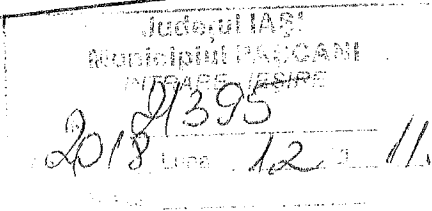 Județul IAȘI
Municipiul PAȘCANI
INTRARE IEȘIRE
21395
2018 Luna 12 11.